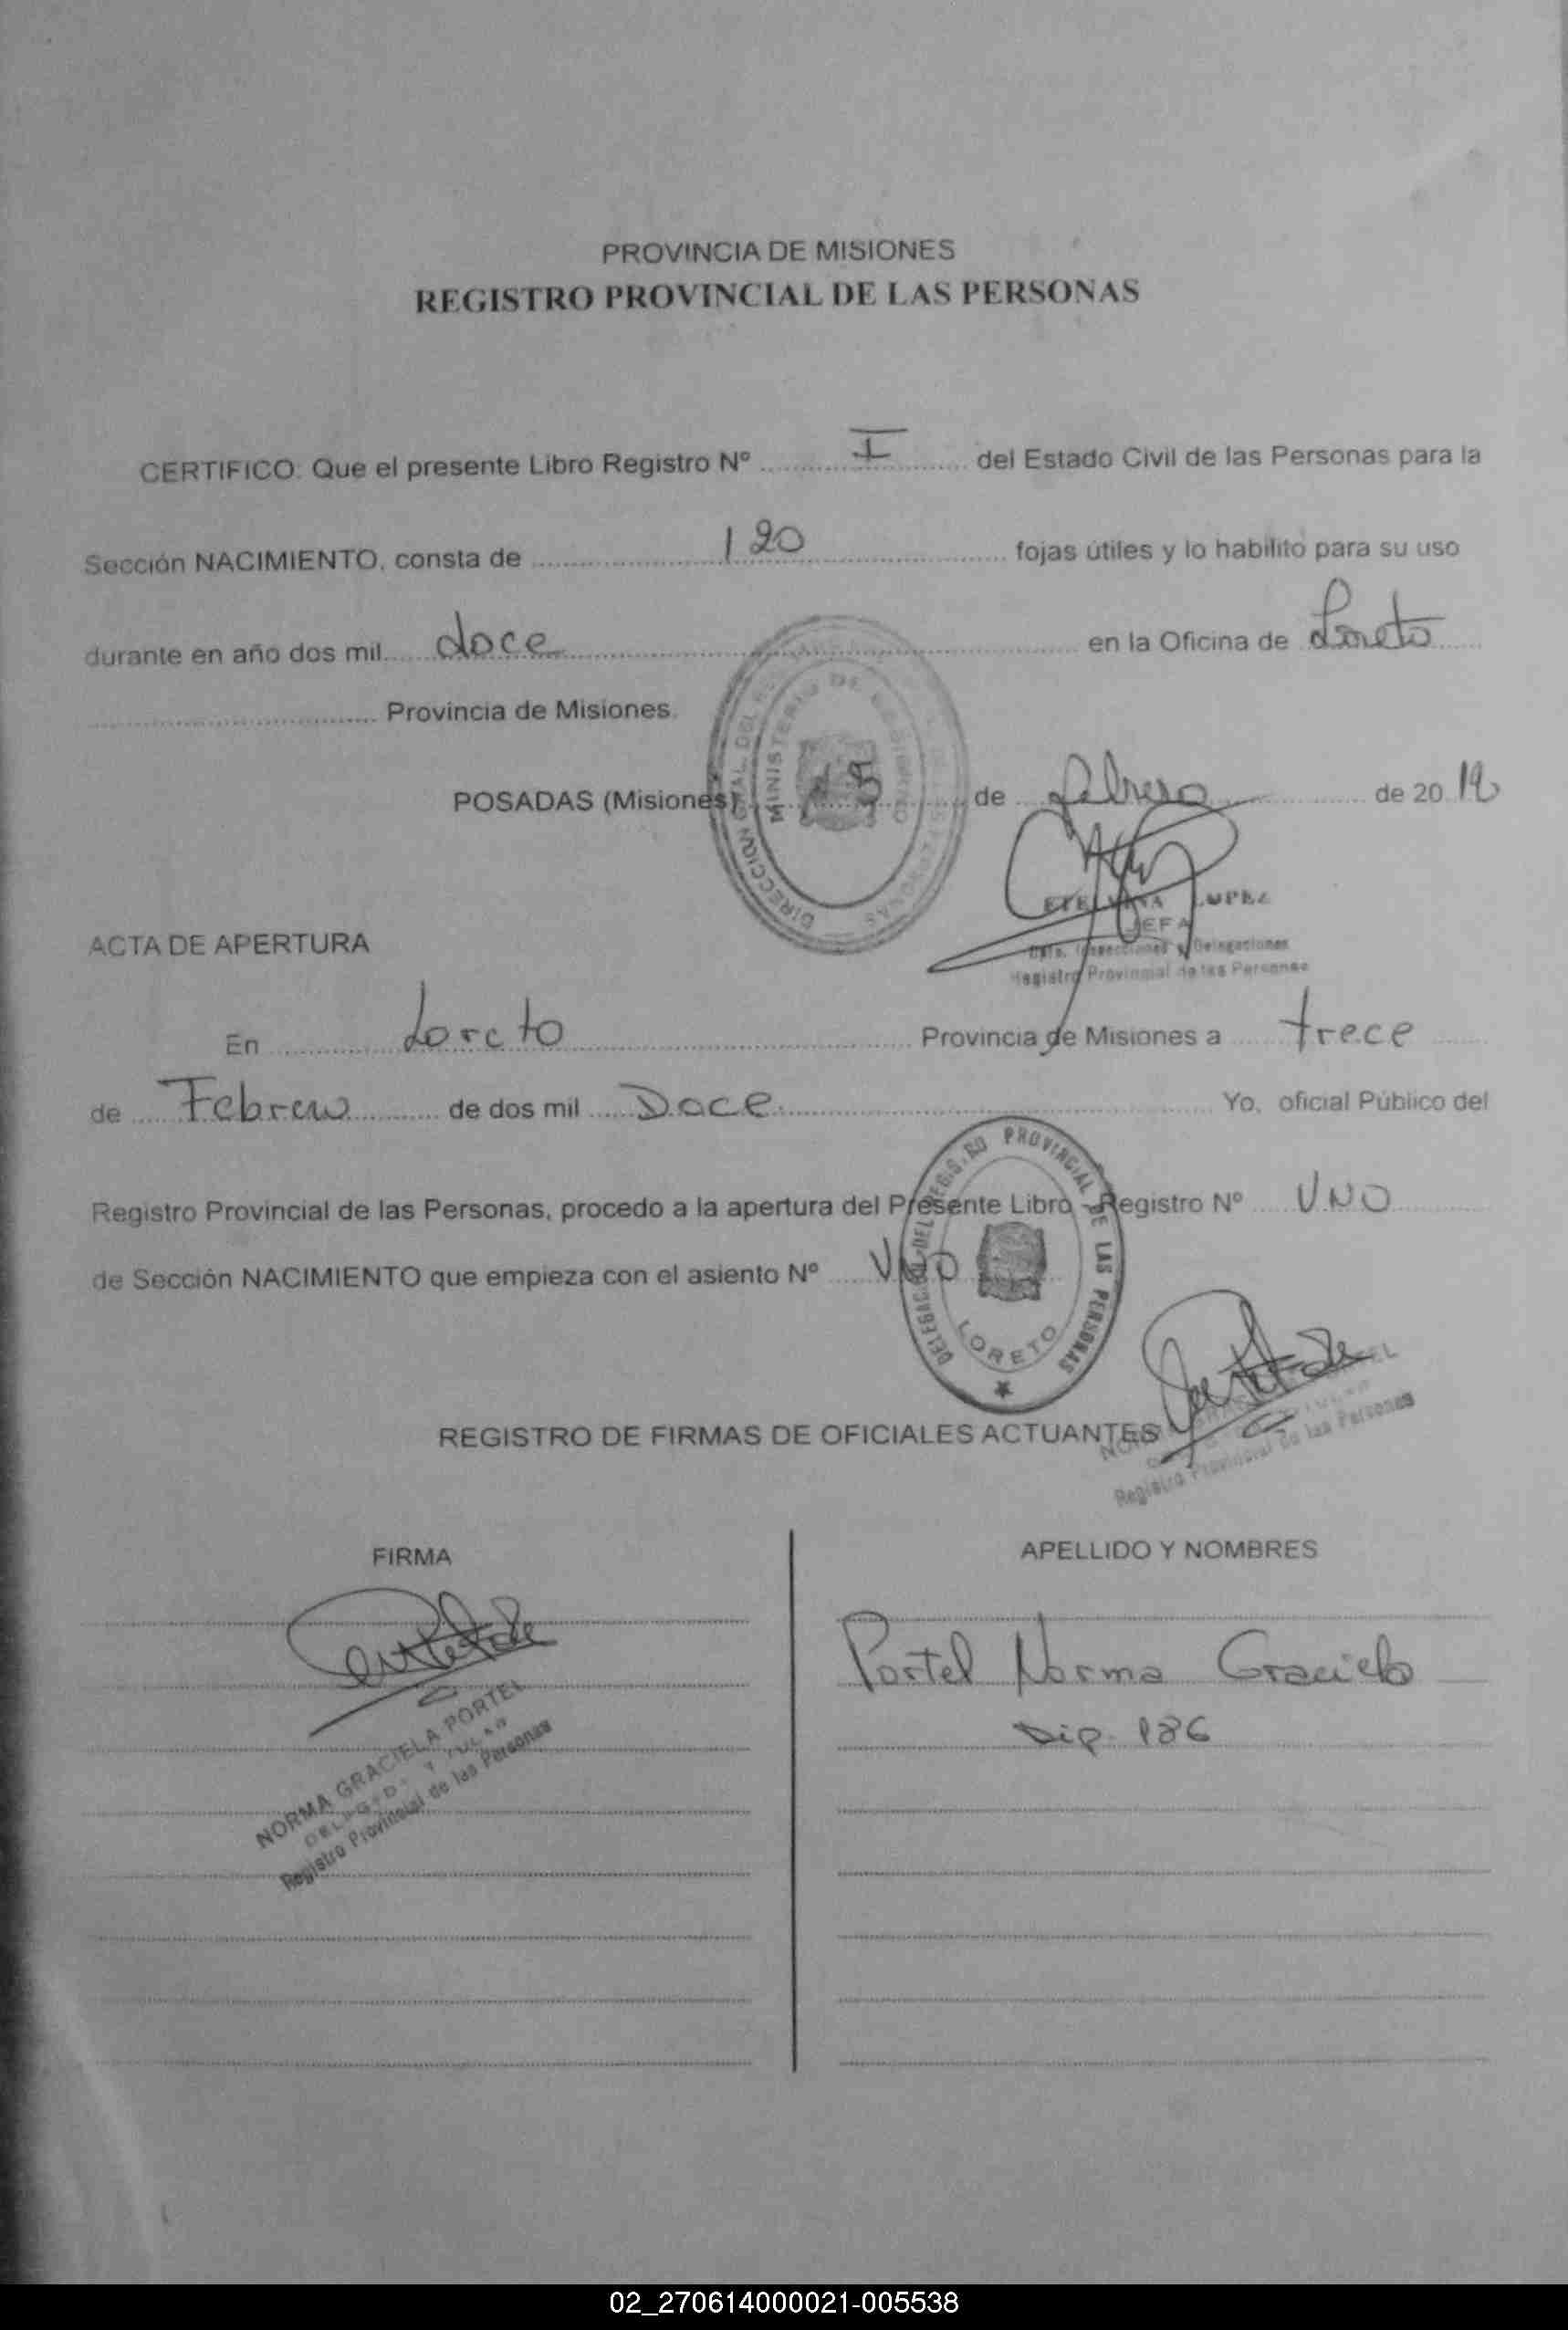 PROVINCIA DE MISIONES
REGISTRO PROVINCIAL DE LAS PERSONAS
CERTIFICO: Que el presente Libro Registro Nº I del Estado Civil de las Personas para la
Sección NACIMIENTO, consta de 120 fojas útiles y lo habilito para su uso
durante en año dos mil doce en la Oficina de Loreto
Provincia de Misiones.
MINISTERIO DE GOBIERNO
POSADAS (Misiones) de febrero de 2012
LOPEZ
JEFA
Dpto. Inspecciones y Delegaciones
Registro Provincial de las Personas
ACTA DE APERTURA
En Loreto Provincia de Misiones a trece
de Febrero de dos mil Doce Yo, oficial Público del
Registro Provincial de las Personas, procedo a la apertura del Presente Libro Registro Nº UNO
de Sección NACIMIENTO que empieza con el asiento Nº UNO
DELEGACION DEL REGISTRO PROVINCIAL DE LAS PERSONAS
LORETO
Registro Provincial de las Personas
REGISTRO DE FIRMAS DE OFICIALES ACTUANTES
FIRMA APELLIDO Y NOMBRES
Portel Norma Graciela
Dip. 186
NORMA GRACIELA PORTEL
Registro Provincial de las Personas
02_270614000021-005538